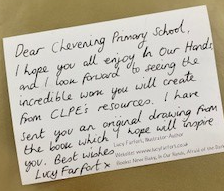 Dear Chevening Primary School,
I hope you all enjoy In Our Hands
and I look forward to seeing the
incredible work you will create
from CLPE's resources. I have
sent you an original drawing from
the book which I hope will inspire
you. Best wishes
Lucy Farfort x
Lucy Farfort, Illustrator Author
Website: www.lucyfarfort.co.uk
Books: New Baby, In Our Hands, Afraid of the Dark